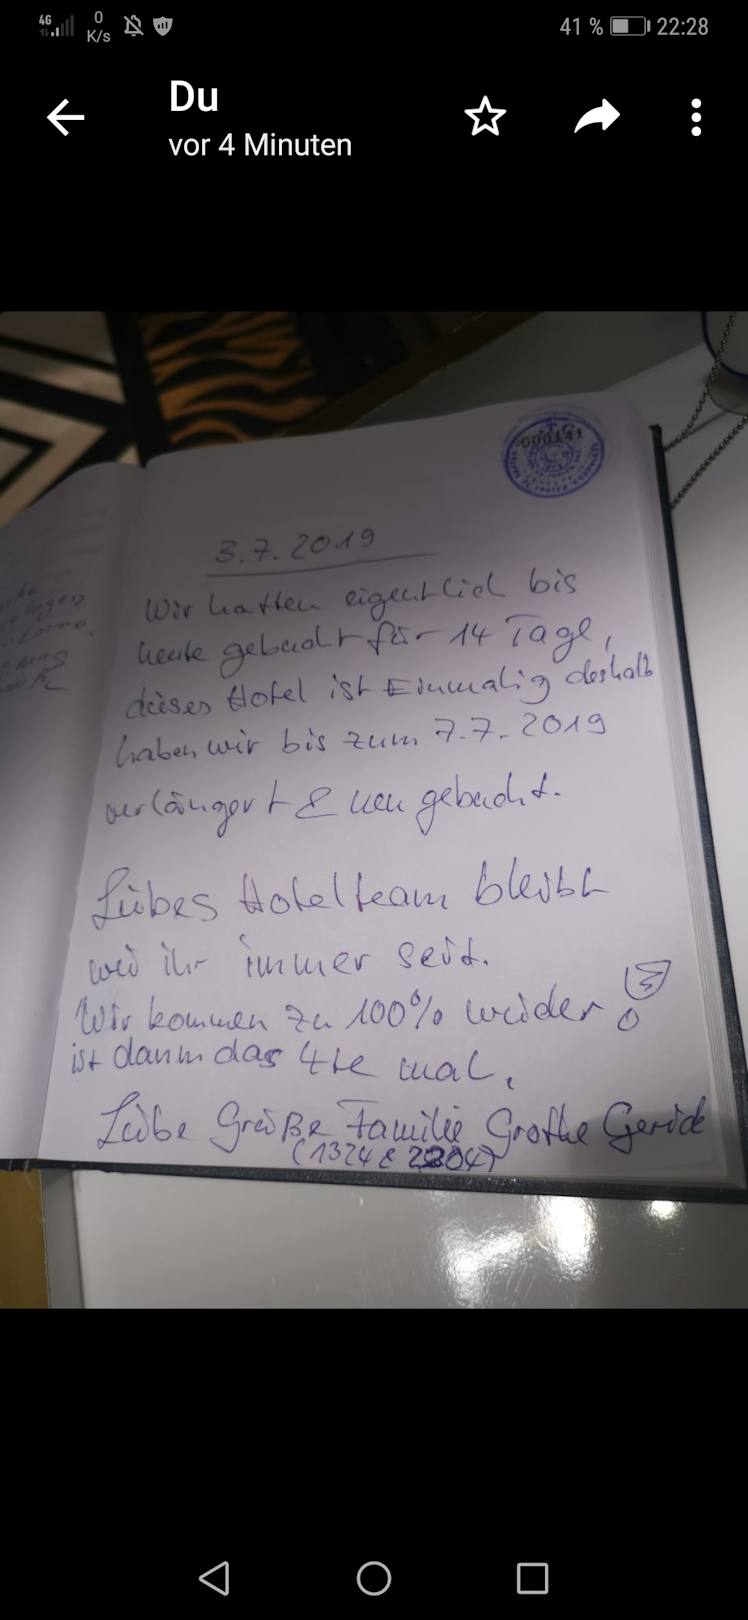 4G
0
K/s
41 %
22:28
Du
vor 4 Minuten
000141
3.7.2019
Wir hatten eigentlich bis
heute gebucht für 14 Tage,
dieses Hotel ist Einmalig deshalb
haben wir bis zum 7.7.2019
verlängert & neu gebucht.
Liebes Hotelteam bleibt
wei ihr immer seid.
Wir kommen zu 100% weider!
ist dann das 4te mal.
Liebe Grüße Familie Grothe Gerick
(1324 & 2304)